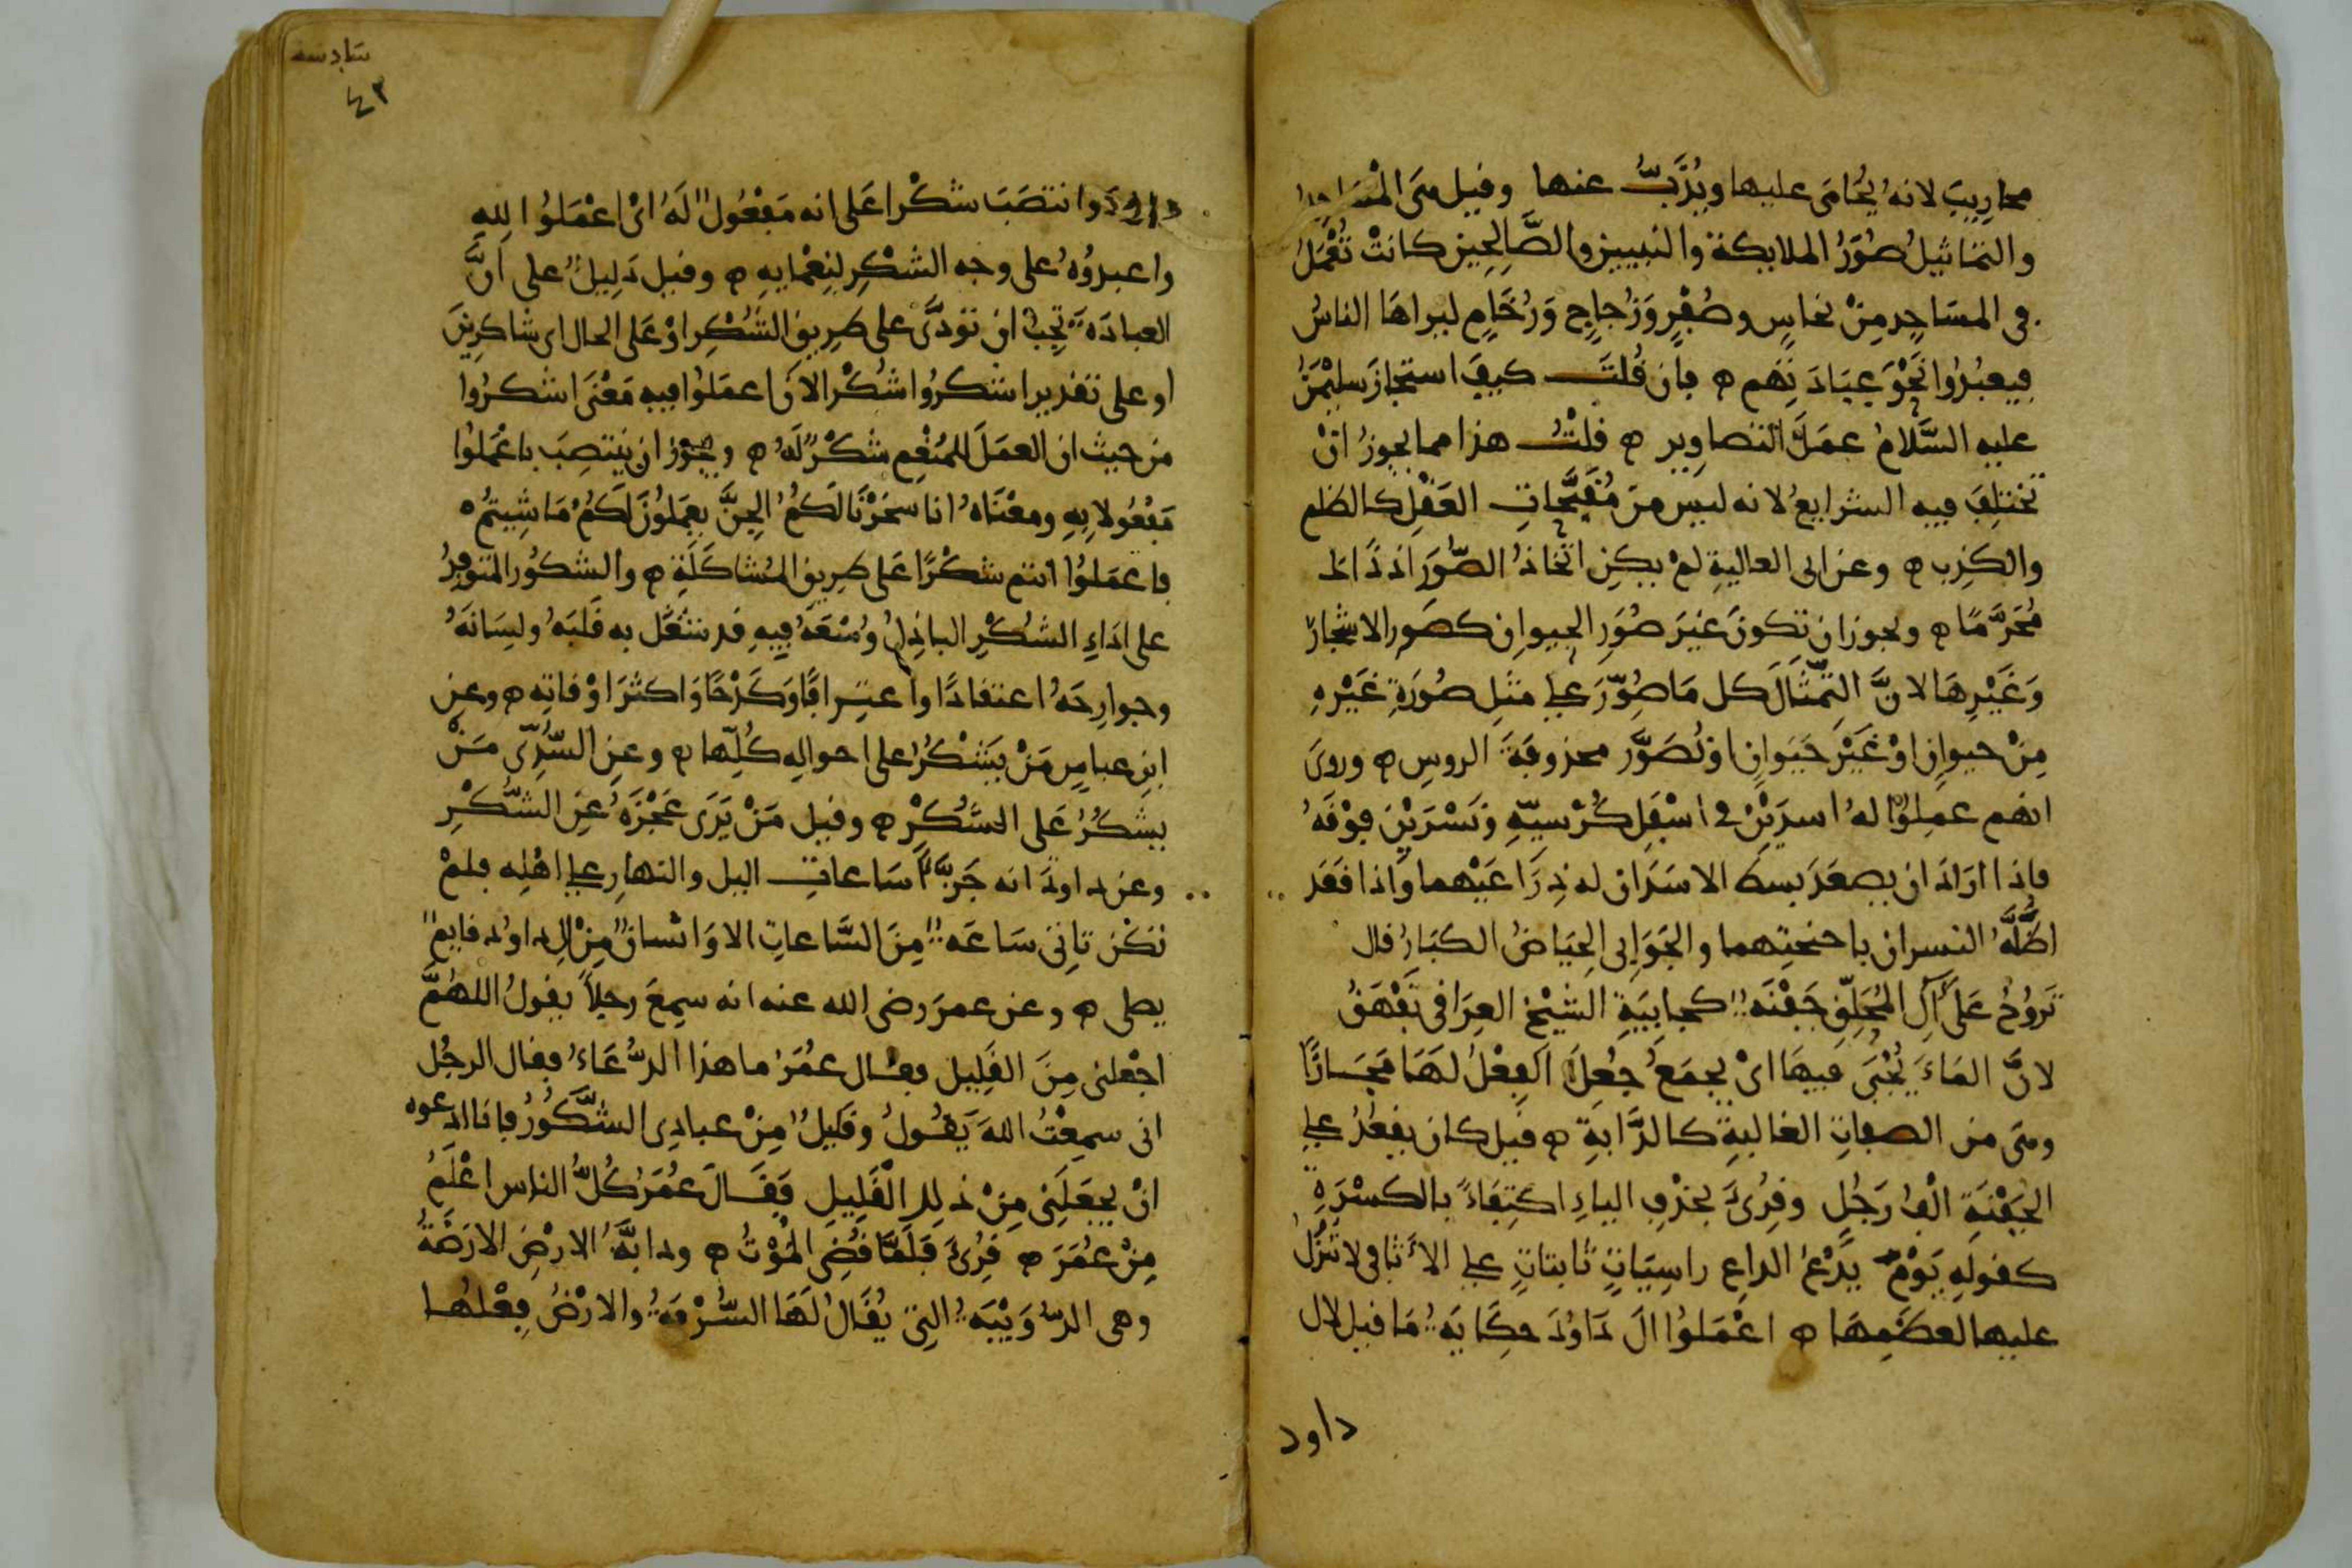 محاريب لانه يُحامَى عليها ويُذَبُّ عنها وقيل هى المسَاجدُ
والتماثيلُ صُوَرُ الملايكة والنبيين والصَّالِحِين كانتْ تُعْمَلُ
فى المسَاجِدِ مِنْ نحاسٍ وصُفْرٍ وَزُجاجٍ وَرُخَامٍ ليراهَا الناسُ
فيعبُدُوا نَحْوَ عِبَادَتِهم ه فان قُلتَ كيفَ استجازَ سليْمَنُ
عليه السَّلامُ عمَلَ التصاوِير ه قلْتُ هذا مما يجوزُ انْ
تختلِفَ فيه الشرايعُ لانه ليس من مُقَبَّحاتِ العَقْلِ كالظلم
والكذِب ه وعن ابى العاليةِ لمْ يكنِ اتّخاذُ الصُّوَرِ اذ ذَاك
مُحَرَّمًا ه ويجوز ان تكونَ غيْرَ صُوَرِ الحيوانِ كصُوَر الاشْجَارِ
وَغَيْرِهَا لانَّ التِّمثَالَ كل مَا صُوِّرَ على مثلِ صُورَةِ غَيْرِهِ
مِنْ حيوانٍ اوْ غَيْرِ حَيَوانٍ اوْ تُصَوَّر محذوفةَ الروسِ ه وروىَ
انهم عمِلُوْا لهُ اسدَيْنِ فى اسْفَلِ كُرْسيّهِ ونَسْرَيْنِ فوْقَهُ
فاِذا ارَادَ ان يصعَدَ بسطَ الاسَدَان له ذِرَاعَيْهما وَاذا قَعَد
اظَلَّهُ النسران باجنحتِهما والجَوَابى الحِيَاضُ الكبَارُ قال
تَرُوحُ عَلَى آلِ المُحَلِّقِ جَفْنَةٌ كجابيَةِ الشيْخِ العِرَاقى تَفْهَقُ
لانَّ المَاءَ يُجْبَى فيهَا اىْ يجمَعُ جُعِلَ الفِعْلُ لهَا مَجَازًا
وهى من الصفاتِ الغالبةِ كالدَّابةِ ه قيل كان يقعُدُ على
الجَفْنَةِ الْفُ رَجُلٍ وقُرِئَ بحذفِ الياءِ اكتِفَاءً بالكسْرَةِ
كقولهِ يَوْمَ يَدْعُ الداعِ راسِيَاتٍ ثابتاتٍ على الاَثافى لا تُنْزَلُ
عليها لعظَمِهَا ه اعْمَلُوا الَ دَاوُدَ حكَايَةٌ مَا قيل لال
داود
سادسه
٤٣
داودَ وانتصَبَ شكْرا عَلى انه مَفْعُولٌ لَهُ اىْ اعْمَلُوا لِلهِ
واعبدُوْهُ على وجه الشكْرِ لنِعْمايهِ ه وقيل دَلِيلٌ على اَنَّ
العبادَةَ تجِبُ ان تؤدَّى على طرِيقِ الشُكْرِ اوْ عَلى الحال اى شاكرِينَ
او على تقدير اشكرُوا شُكْرا لانَّ اعمَلُوا فيهِ مَعْنَى اشكرُوا
من حيث ان العمَلَ للمُنْعِمِ شكْرٌ لَهُ ه ويجُوز ان ينتصِبَ باعْمَلُوا
مَفْعُولا بِهِ ومعْنَاهُ انا سخّرْنَا لكُمُ الجِنَّ يعمَلُونَ لَكُمْ مَا شِيتُمْ
فاعمَلُوْا انتم شكْرًا عَلى طرِيقِ المُشاكَلَةِ ه والشكُور المتوفِرُ
على ادَاءِ الشُكْرِ الباذِلُ وُسْعَهُ فِيهِ قد شغَلَ به قَلبَهُ ولِسَانَهُ
وجوارِحَهُ اعتقادًا واعتِرافًا وكَدْحًا وَاكثَرَ اوْقاتِه ه وعن
ابنِ عباسٍ مَنْ يَشْكُرُ على احوالِه كُلِّها ه وعنِ السُّدِّى مَنْ
يشكُرُ عَلى الشُكْرِ ه وقيل مَنْ يَرَى عَجْزَهُ عَنِ الشُّكْرِ
وعن داودَ انه جَزَّأَ سَاعاتِ اليل والنهارِ على اهْلِه فلمْ
تكُن تاتى سَاعَةٌ مِنَ السَّاعاتِ الا وَانْسانٌ مِنْ الِ داوُد قايمٌ
يصلى ه وعن عمرَ رضى الله عنه انه سمِعَ رجلاً يقولُ اللهُمَّ
اجْعلنى مِنَ القَلِيل فقال عمُرُ ما هذا الدُّعَاءُ فقال الرجُل
انى سمِعْتُ اللهَ يَقُولُ وقَليلٌ مِنْ عبادِى الشَّكُورُ فانا ادعوه
انْ يجعَلَنِى مِنْ ذلِك الْقَلِيلِ فَقَالَ عُمَرُ كُلُّ الناس اعْلَمُ
مِنْ عُمَرَ ه قُرِئَ فَلَمَّا قَضَى الْمَوْتَ ه ودابَّةُ الارْضِ الارَضَةُ
وهى الدُّوَيْبَةُ التِى يُقَالُ لَهَا السُّرْفَةُ والارْضُ فِعْلُهَا